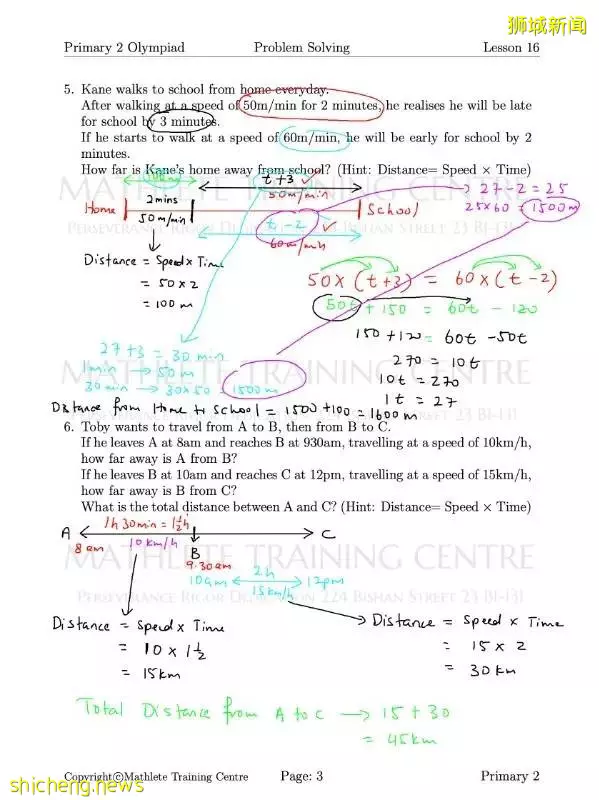 狮城新闻
Primary 2 Olympiad Problem Solving Lesson 16
5. Kane walks to school from home everyday.
After walking at a speed of 50m/min for 2 minutes, he realises he will be late
for school by 3 minutes.
If he starts to walk at a speed of 60m/min, he will be early for school by 2
minutes.
How far is Kane's home away from school? (Hint: Distance= Speed × Time)
MATHLETE TRAINING CENTRE
t+3
50m/min
27-2 = 25
25×60 = 1500m
2 mins
Home
School
50m/min
t-2
60m/min
Distance = Speed × Time
= 50 × 2
= 100m
50×(t+3) = 60×(t-2)
50t + 150 = 60t - 120
150 + 120 = 60t - 50t
270 = 10t
10t = 270
1t = 27
27+3 = 30 min
1min → 50m
30 min → 30×50 = 1500m
MATHLETE TRAINING CENTRE
Distance from Home to School = 1500 + 100 = 1600m
6. Toby wants to travel from A to B, then from B to C.
If he leaves A at 8am and reaches B at 930am, travelling at a speed of 10km/h,
how far away is A from B?
If he leaves B at 10am and reaches C at 12pm, travelling at a speed of 15km/h,
how far away is B from C?
What is the total distance between A and C? (Hint: Distance= Speed × Time)
1h 30min = 1½h
A
C
8am
10km/h
B
9.30am
MATHLETE TRAINING CENTRE
2h
10am
12pm
15km/h
Distance = Speed × Time
= 10 × 1½
= 15km
Distance = Speed × Time
= 15 × 2
= 30km
Total Distance from A to C → 15 + 30
= 45km
Copyright©Mathlete Training Centre Page: 3 Primary 2
shicheng.news